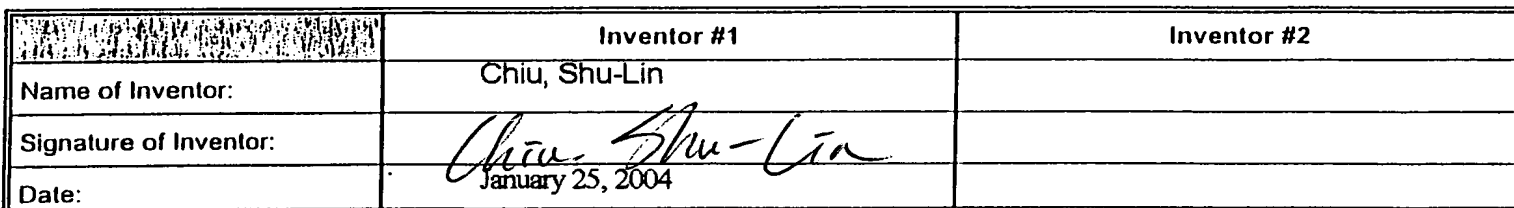 Inventor #1 Inventor #2
Name of Inventor: Chiu, Shu-Lin
Signature of Inventor: Chiu, Shu-Lin
Date: January 25, 2004